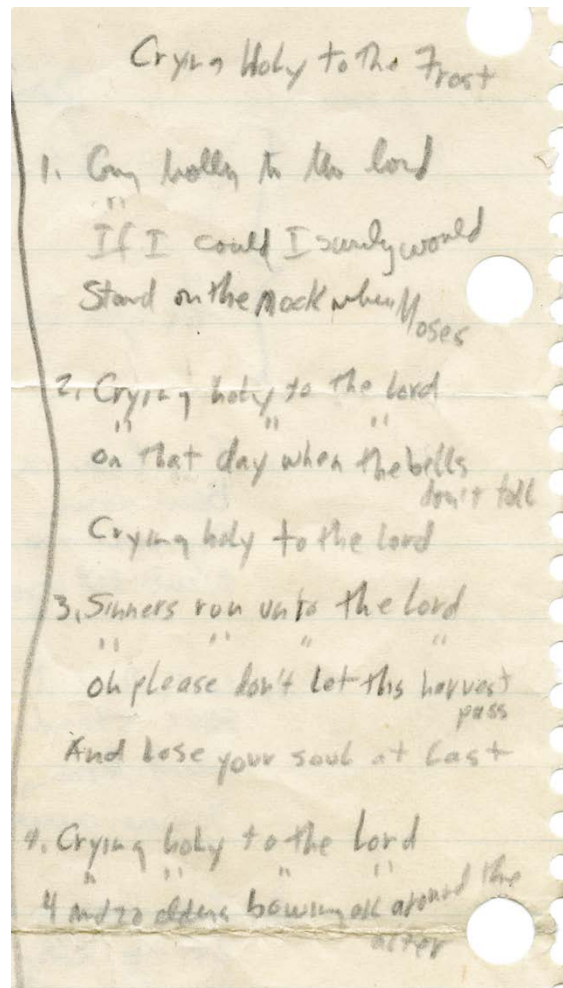 Crying Holy to the Frost
1. Cry holly to the lord
"
If I could I surely would
Stand on the Rock when Moses
2. Crying holy to the lord
" " "
on that day when the bells
don't toll
Crying holy to the lord
3. Sinners run unto the lord
" " " "
oh please don't let this harvest
pass
And lose your soul at last
4. Crying holy to the lord
" " " "
4 and 20 elders bowing all around the
alter